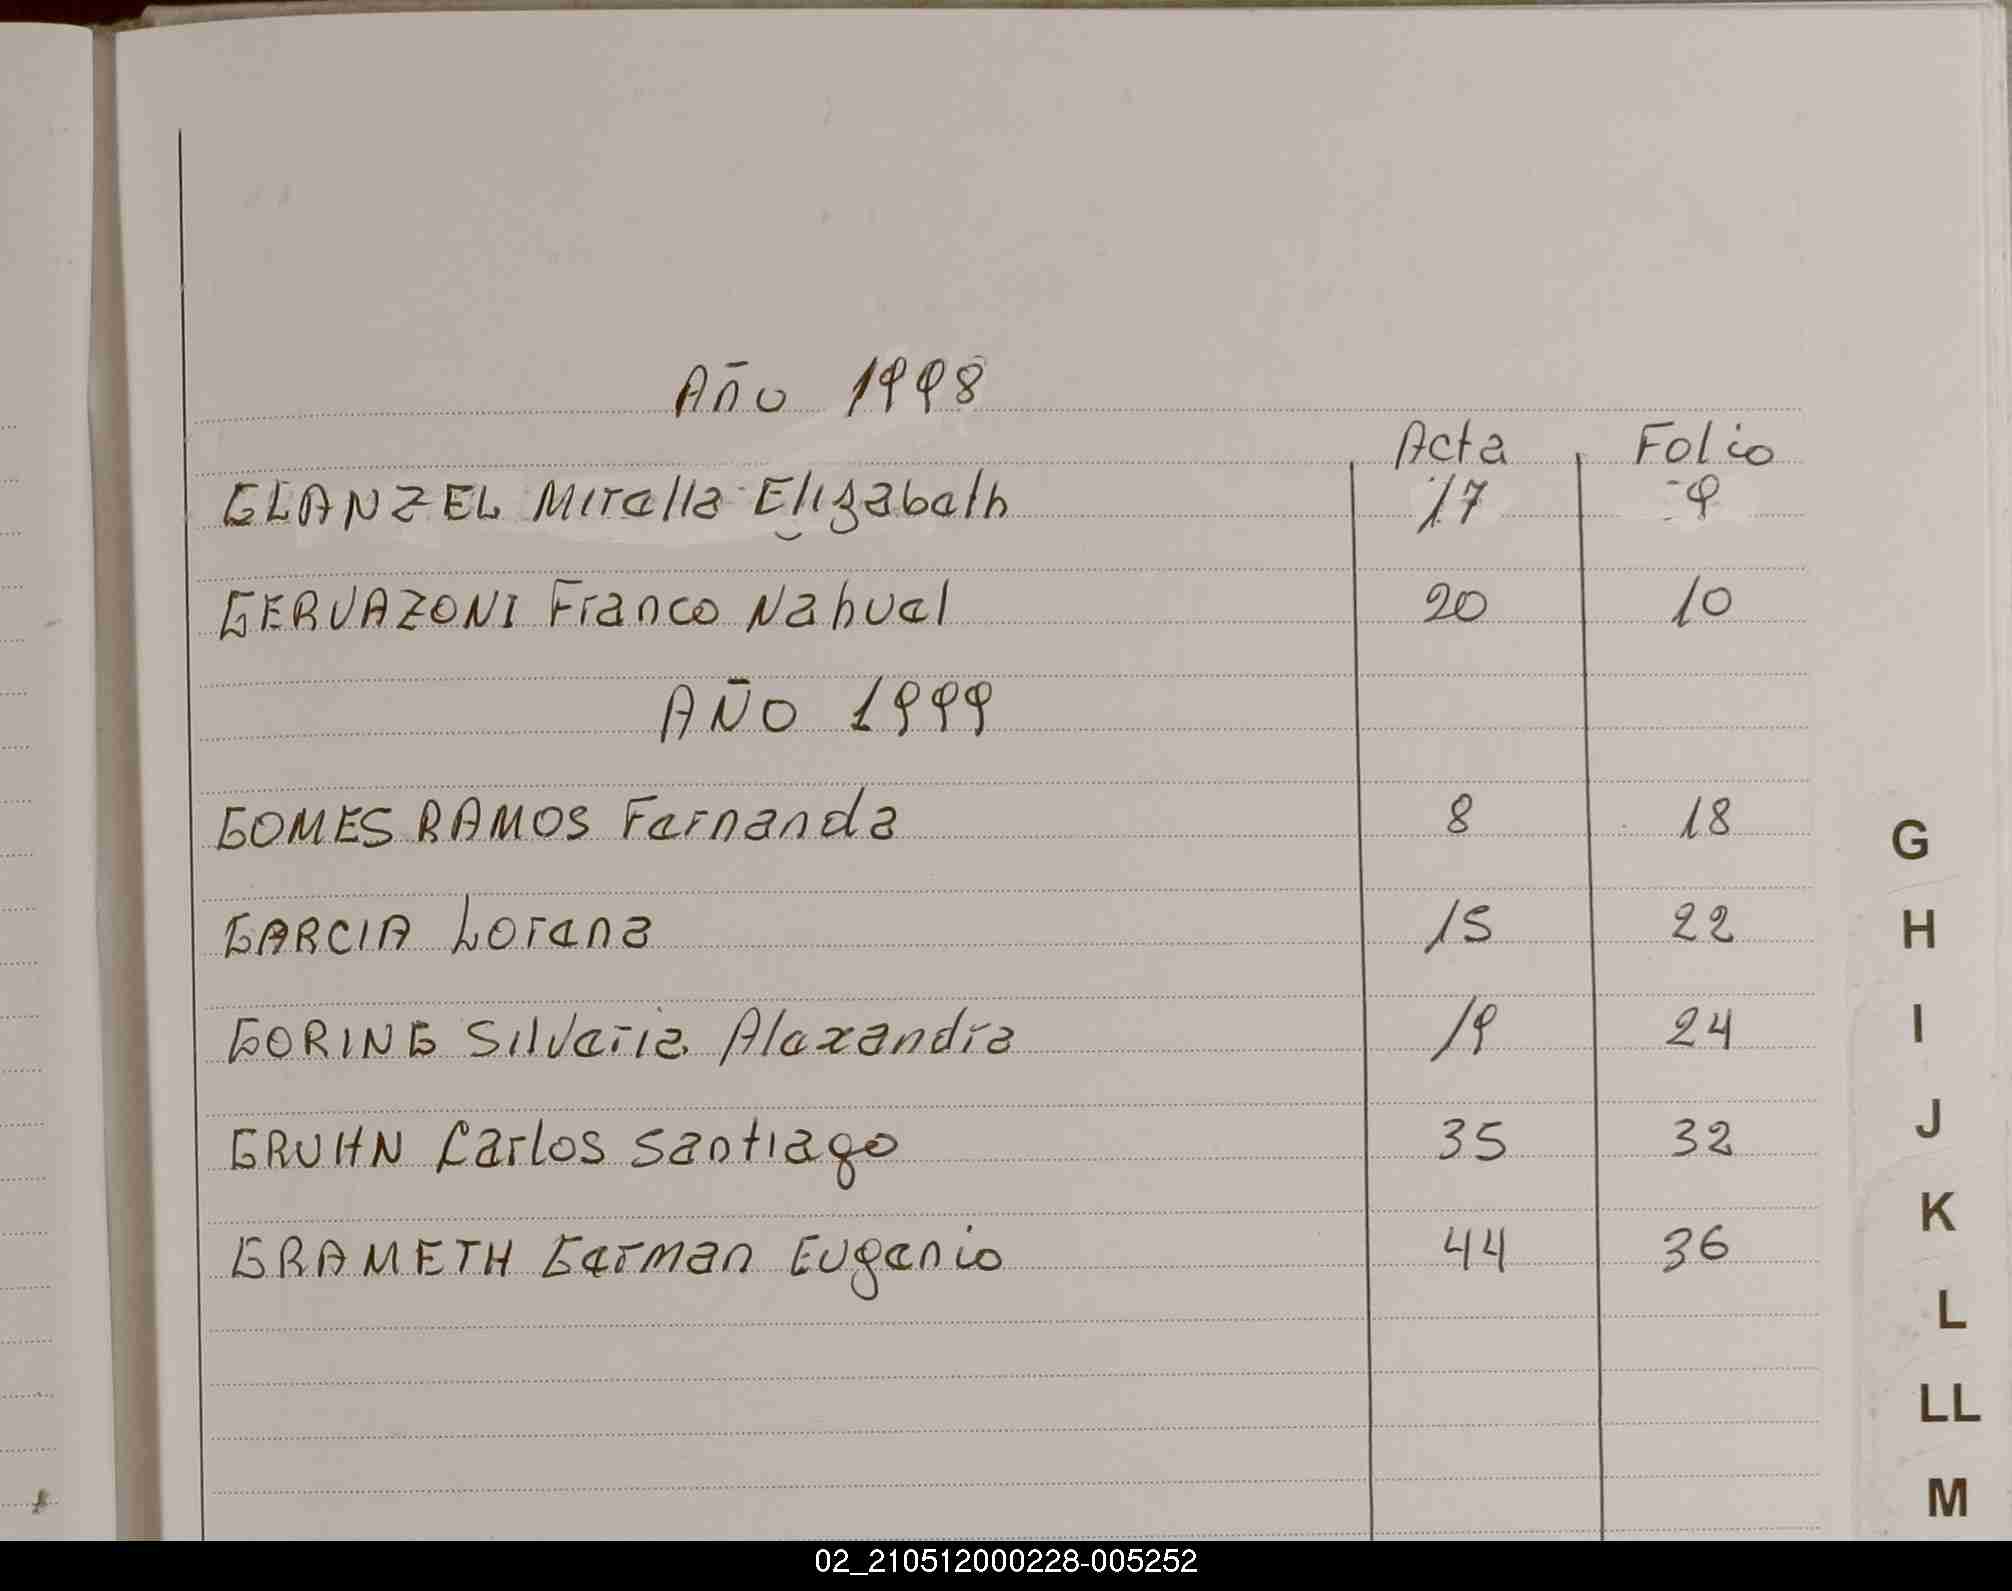 Año 1998
Acta Folio
GLANZEL Mirella Elizabeth 17 9
GERVAZONI Franco Nahuel 20 10
AÑO 1999
GOMES RAMOS Fernanda 8 18
GARCIA Lorena 15 22
GORING Silveria Alexandra 19 24
GRUHN Carlos Santiago 35 32
GRAMETH German Eugenio 44 36
G
H
I
J
K
L
LL
M
02_210512000228-005252